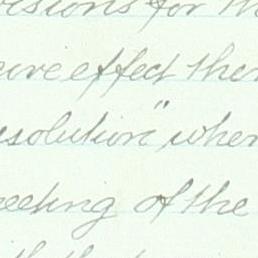 visions for th
eive effect ther
esolution" when
eeting of the